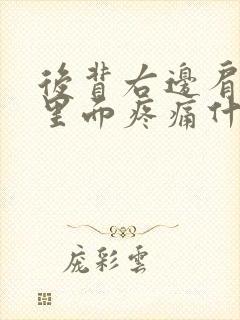 後背右邊肩
里面疼痛什
庞彩雲